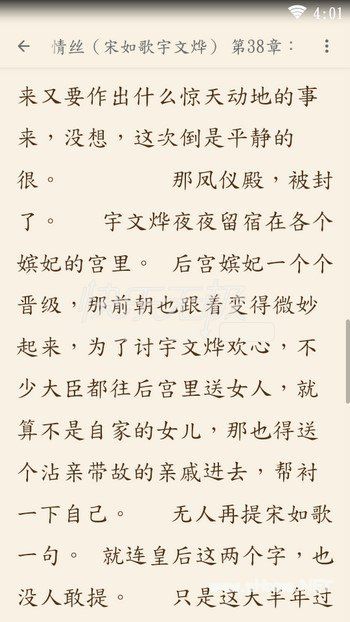 4:01
情丝（宋如歌宇文烨） 第38章：
来又要作出什么惊天动地的事
来，没想，这次倒是平静的
很。 那凤仪殿，被封
了。 宇文烨夜夜留宿在各个
嫔妃的宫里。 后宫嫔妃一个个
晋级，那前朝也跟着变得微妙
起来，为了讨宇文烨欢心，不
少大臣都往后宫里送女人，就
算不是自家的女儿，那也得送
个沾亲带故的亲戚进去，帮衬
一下自己。 无人再提宋如歌
一句。 就连皇后这两个字，也
没人敢提。 只是这大半年过